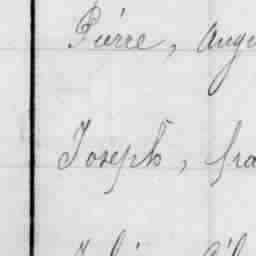 Pierre, Augu
Joseph, fra